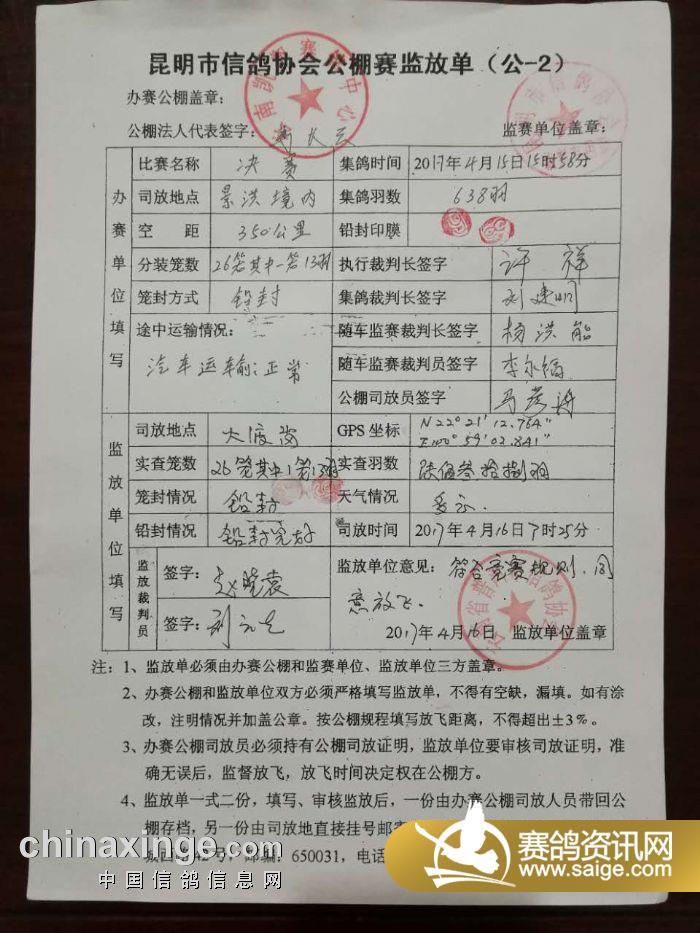 昆明市信鸽协会公棚赛监放单（公-2）
办赛公棚盖章：
公棚法人代表签字：
监赛单位盖章：
办赛单位填写
比赛名称 决赛 集鸽时间 2017年4月15日15时58分
司放地点 景洪境内 集鸽羽数 638羽
空 距 350公里 铅封印膜
分装笼数 26笼其中一笼13羽 执行裁判长签字 许祥
笼封方式 铅封 集鸽裁判长签字 刘建明
途中运输情况： 随车监赛裁判长签字 杨洪能
汽车运输：正常 随车监赛裁判员签字 李永
公棚司放员签字 马
监放单位填写
司放地点 大渡岗 GPS 坐标 N 22° 21′ 12.764″
E100° 59′ 02.841″
实查笼数 26笼其中1笼13羽 实查羽数 陆佰叁拾捌羽
笼封情况 铅封 天气情况 多云
铅封情况 铅封完好 司放时间 2017年4月16日7时25分
监放裁判员
签字： 赵
签字： 刘
监放单位意见： 符合竞赛规则．同
意放飞．
2017年4月16日 监放单位盖章
注：1、监放单必须由办赛公棚和监赛单位、监放单位三方盖章。
2、办赛公棚和监放单位双方必须严格填写监放单，不得有空缺，漏填。如有涂
改，注明情况并加盖公章。按公棚规程填写放飞距离，不得超出±3％。
3、办赛公棚司放员必须持有公棚司放证明，监放单位要审核司放证明，准
确无误后，监督放飞，放飞时间决定权在公棚方。
4、监放单一式二份，填写、审核监放后，一份由办赛公棚司放人员带回公
棚存档，另一份由司放地直接挂号邮寄
邮编：650031，电话
chinaxinge.com
中国信鸽信息网
赛鸽资讯网
www.saige.com